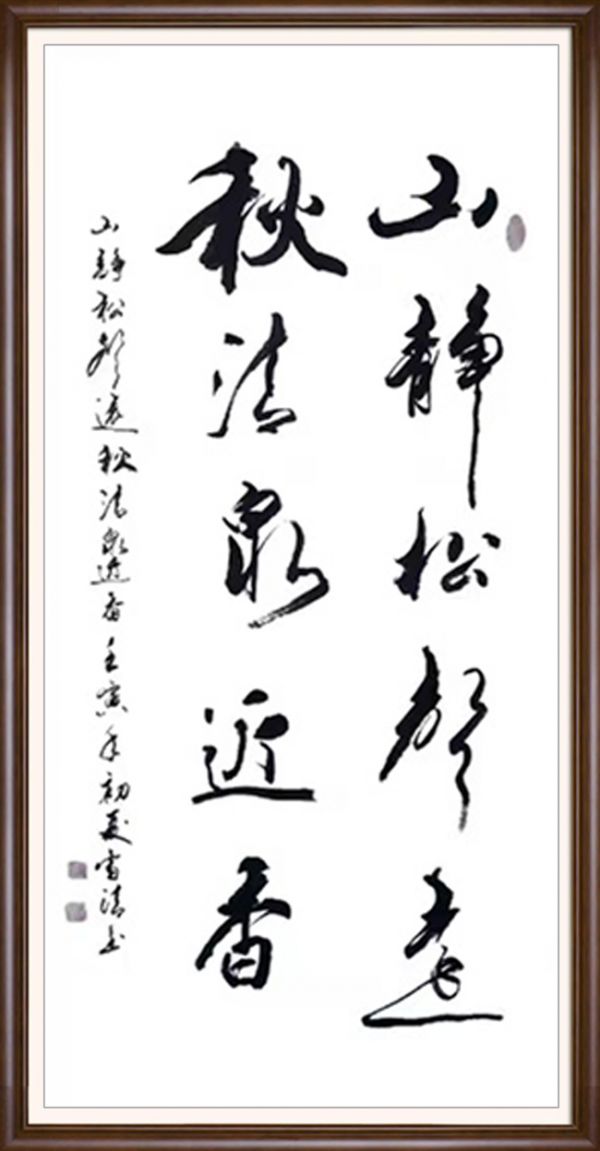 山静松声远
秋清泉近香
山静松声远秋清泉近香壬寅年初夏雷清书